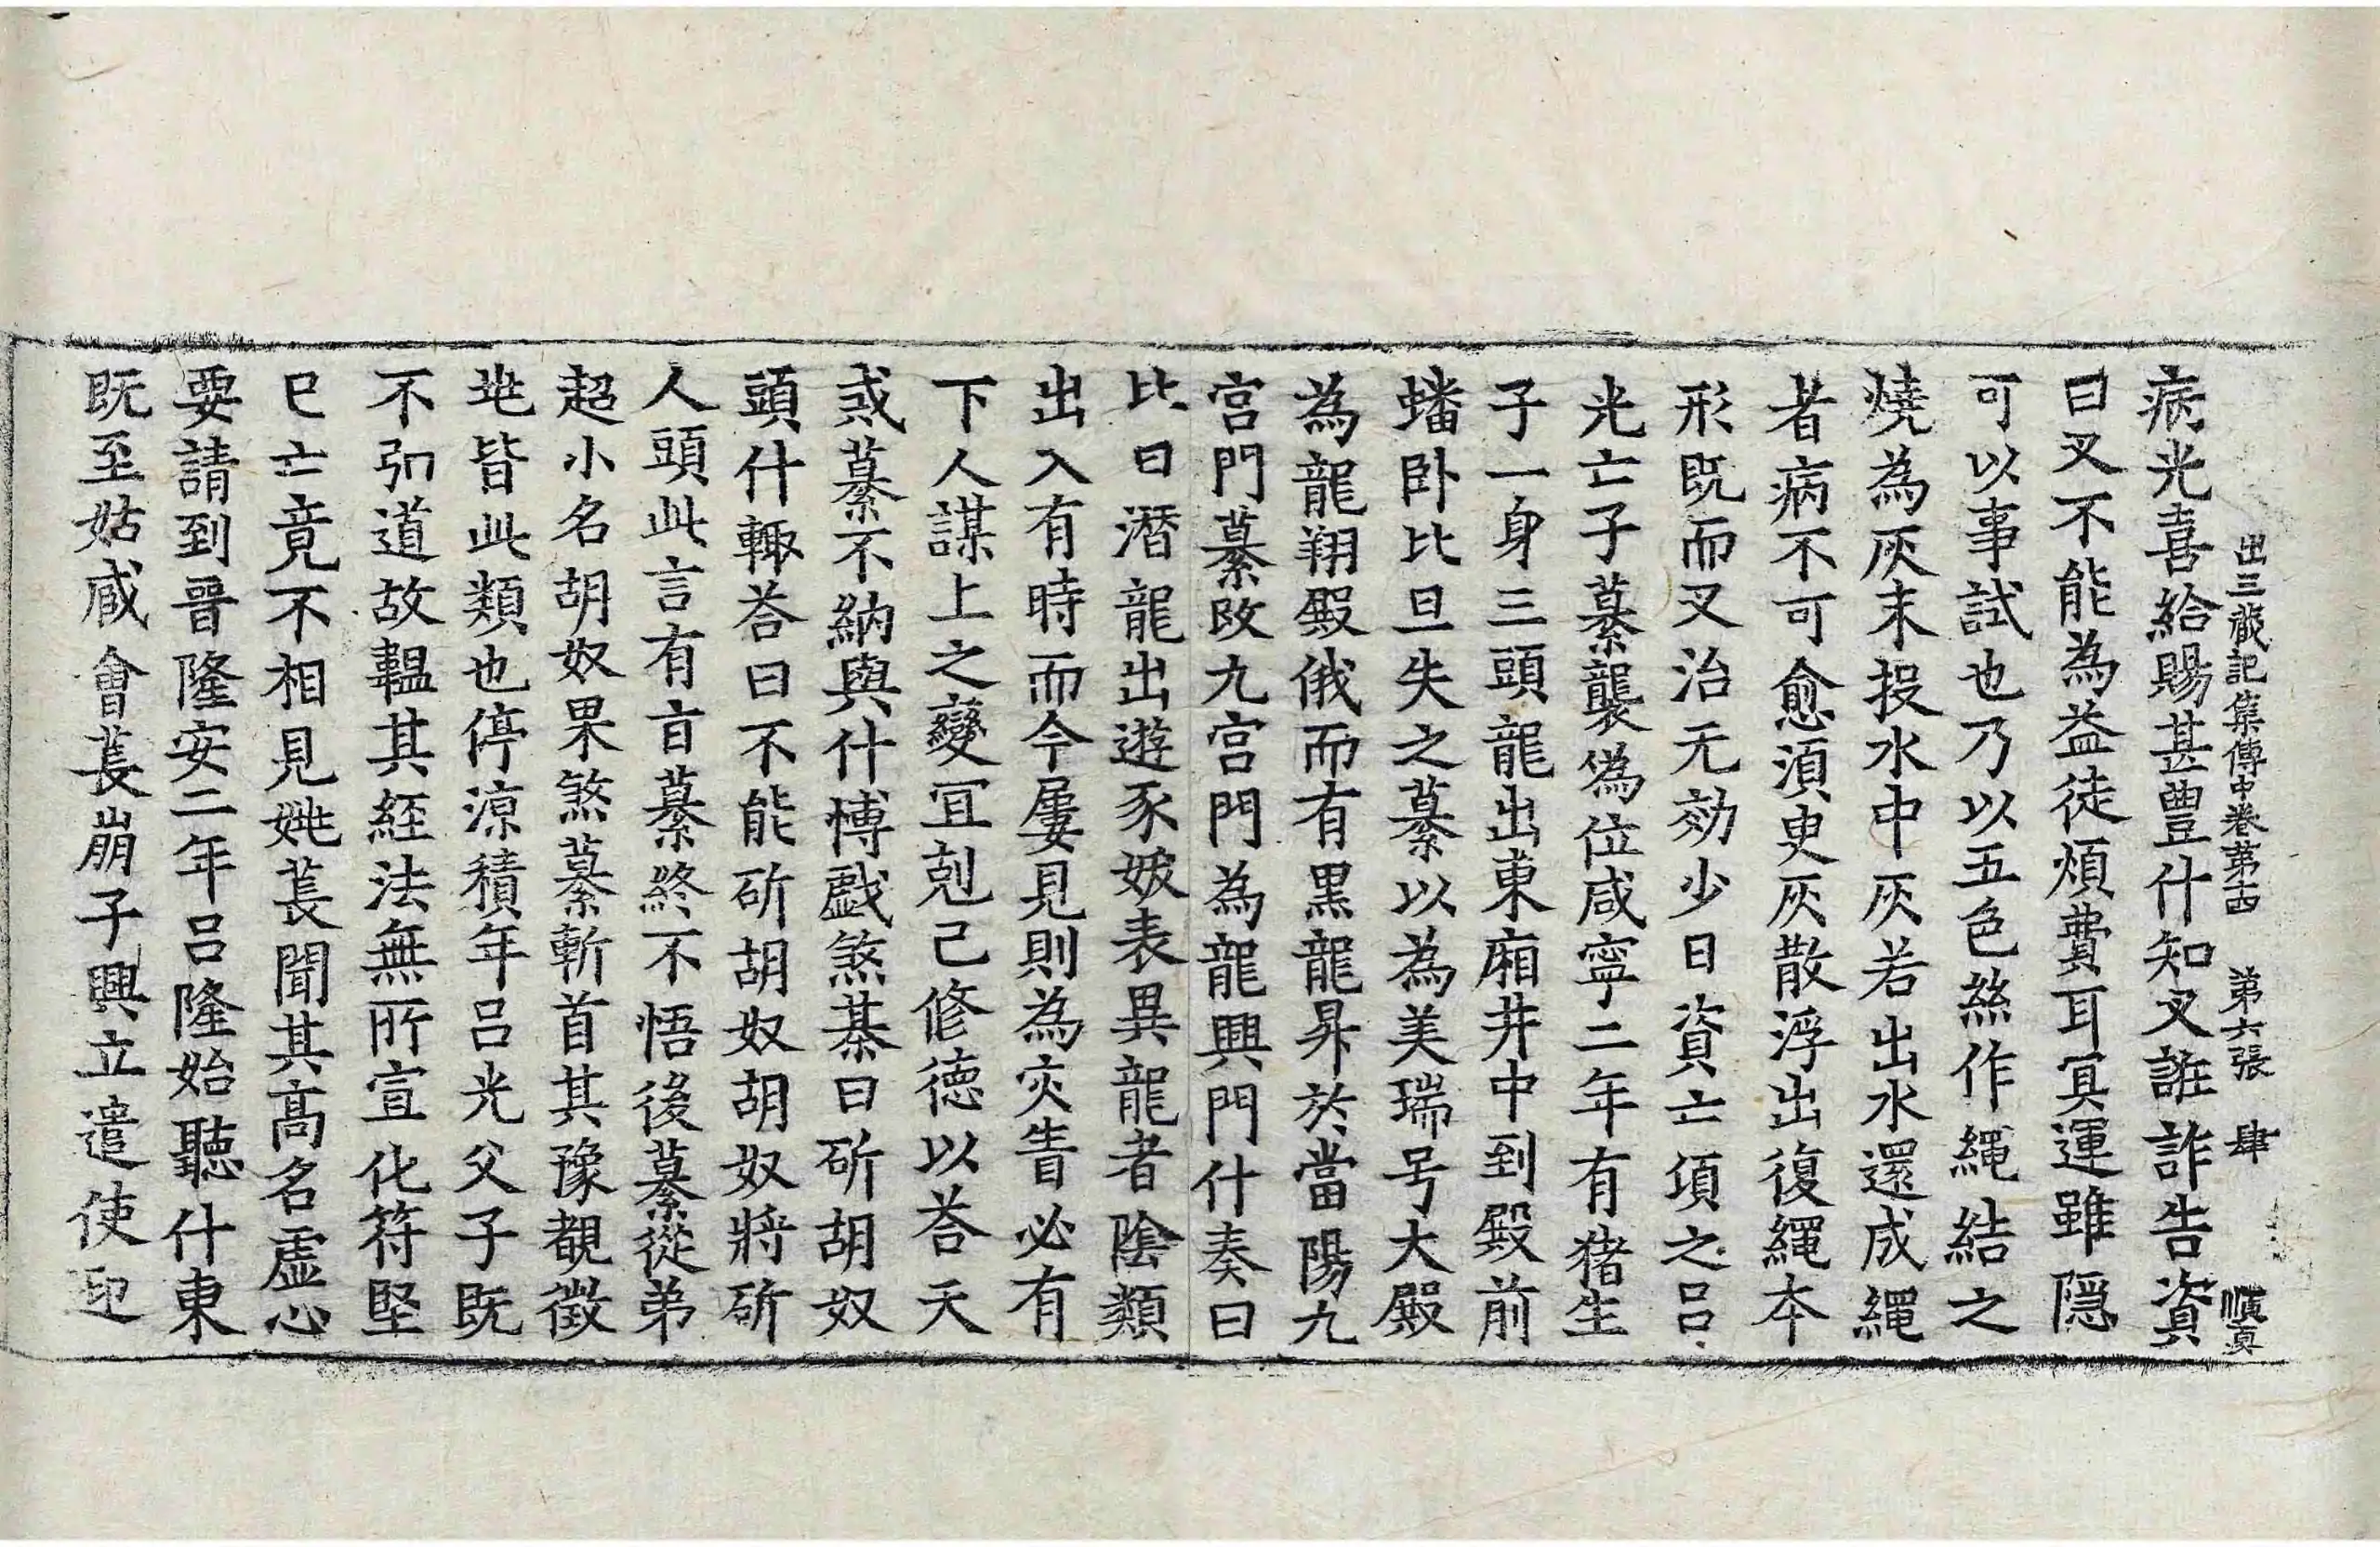 出三藏記集傳中卷第十四 第六張 肆 順真
病光喜給賜甚豊什知叉誑詐告資
曰叉不能為益徒煩費耳冥運雖隱
可以事試也乃以五色絲作繩結之
燒為灰末投水中灰若出水還成繩
者病不可愈湏臾灰散浮出復繩本
形既而叉治无効少日資亡頃之呂
光亡子纂襲偽位咸寧二年有猪生
子一身三頭龍出東廂井中到殿前
蟠卧比旦失之纂以為美瑞号大殿
為龍翔殿俄而有黒龍昇於當陽九
宮門纂改九宮門為龍興門什奏曰
比日潛龍出遊豕妖表異龍者陰類
出入有時而今屢見則為灾眚必有
下人謀上之變冝剋己修德以荅天
戒纂不納與什博戲煞棊曰斫胡奴
頭什輙荅曰不能斫胡奴胡奴將斫
人頭此言有盲纂終不悟後纂從弟
超小名胡奴果煞纂斬首其豫覩徵
兆皆此類也停涼積年呂光父子既
不弘道故韞其經法無所宣化符堅
已亡竟不相見姚萇聞其高名虛心
要請到晉隆安二年呂隆始聽什東
既至姑臧會萇崩子興立遣使迎